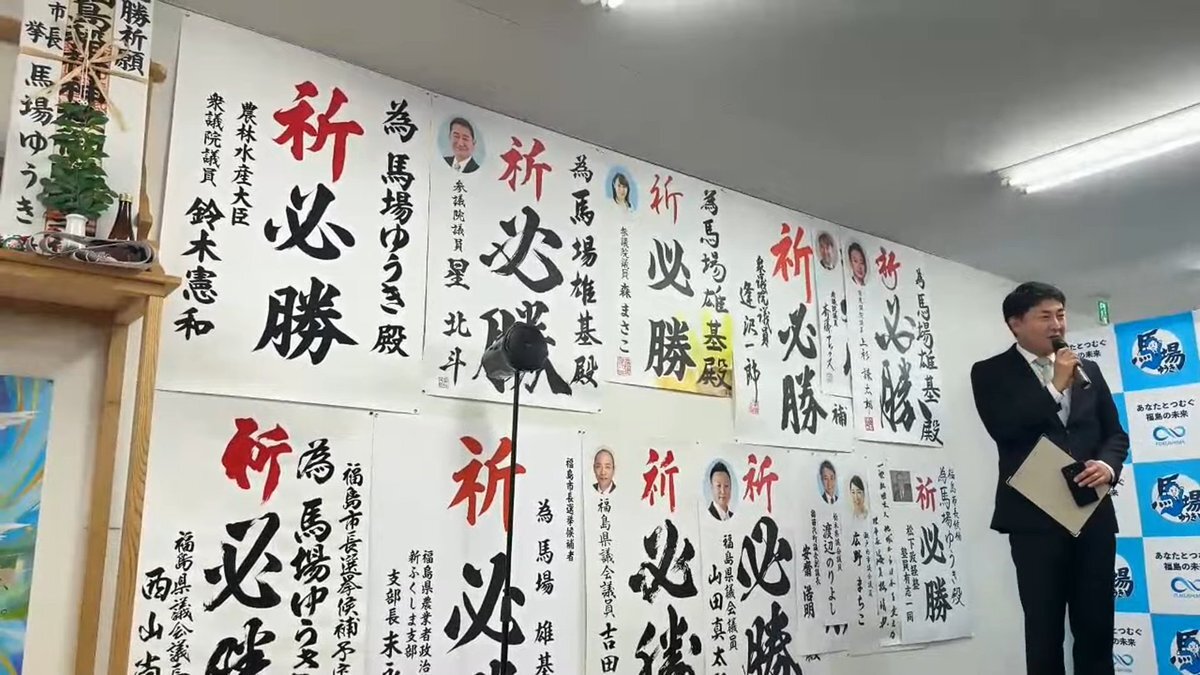 必勝祈願
市長
挙
馬場ゆうき
為 馬場ゆうき 殿
祈 必勝
農林水産大臣
衆議院議員 鈴木憲和
為 馬場雄基殿
祈 必勝
参議院議員 星 北斗
為 馬場雄基殿
祈 必勝
参議院議員 森 まさこ
祈 必勝
衆議院議員
逢沢一郎
補
為 馬場雄基殿
祈 必勝
上杉 謙太郎
福島市長選挙候補予定
為 馬場ゆうき
祈 必勝
福島県議会議長
西山尚
福島市長選挙候補者
為 馬場 雄基
祈 必
福島県農業者政治
新ふくしま支部
支部長 末永
祈 必勝
福島県議会議員 吉田
祈 必勝
福島県議会議員
山田真太
渡辺のりよし
安齋浩明
広野 まちこ
福島市長候補
為 馬場ゆうき 殿
祈 必勝
松下政経塾
塾員有志一同
馬場
ゆうき
あなたとつむぐ
福島の未来
FUKUSHIMA
馬場
ゆうき
あなたとつむぐ
福島の未来